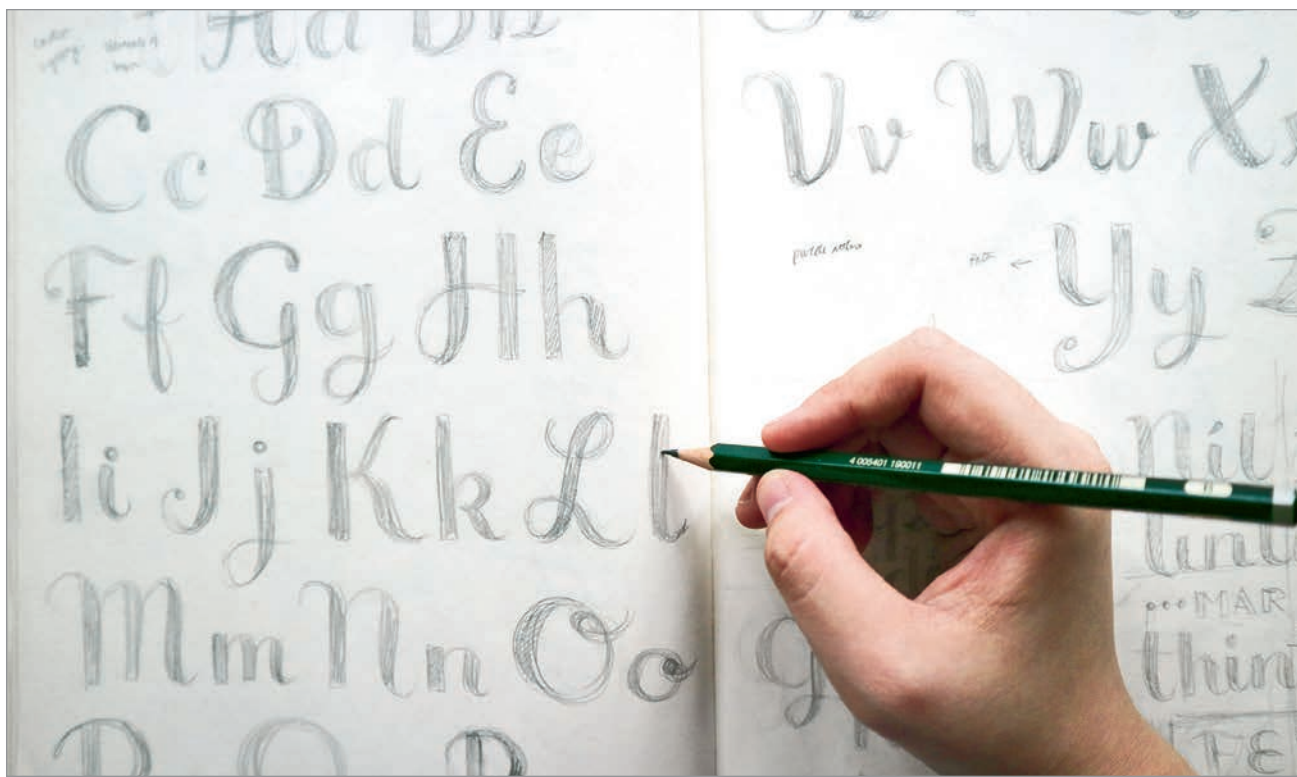 Aa Bb
Cc Dd Ee
Ff Gg Hh
Ii Jj Kk Ll
Mm Nn Oo
P Q R
Vv Ww Xx
Yy Z
4 005401 190011
nil
...MAR
thin
FE